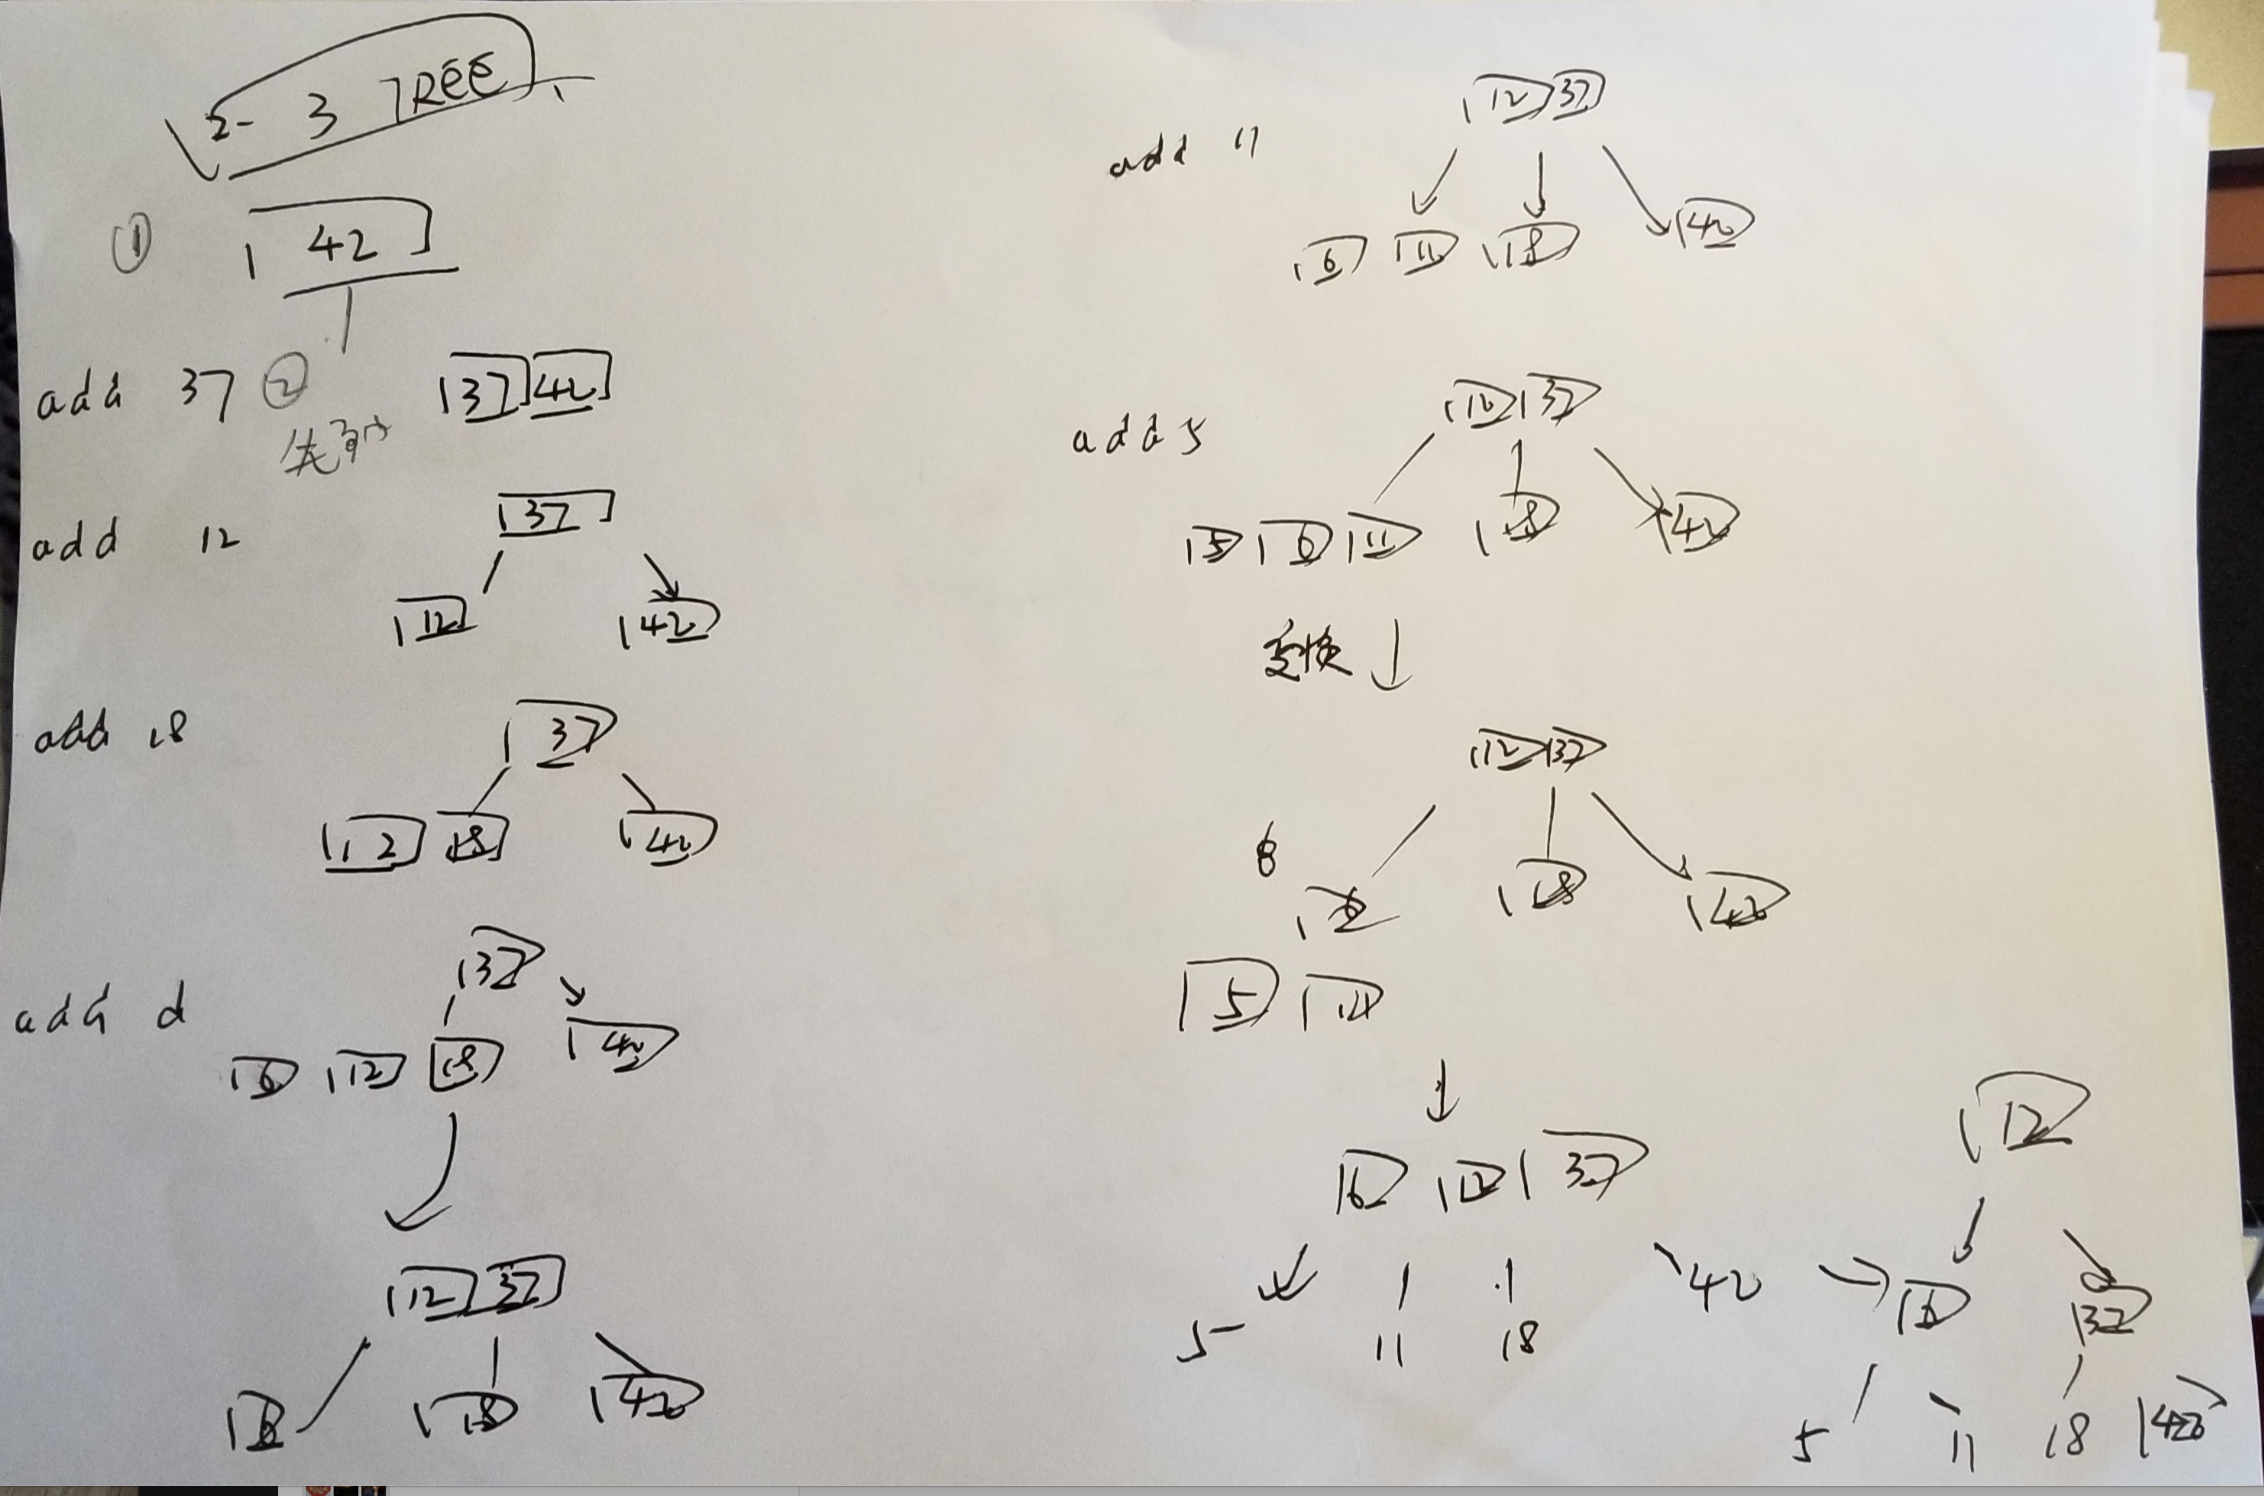 2- 3 TREE
① 42
add 37 ② 37 42
add 12 37
12 42
add 18 37
12 18 42
add d 37
6 12 18 42
12 37
6 18 42
add 11 12 37
6 11 18 42
add 5 12 37
5 6 11 18 42
变换
12 37
6
6 18 42
5 11
6 12 37
42
5 11 18
12
6 37
5 11 18 42